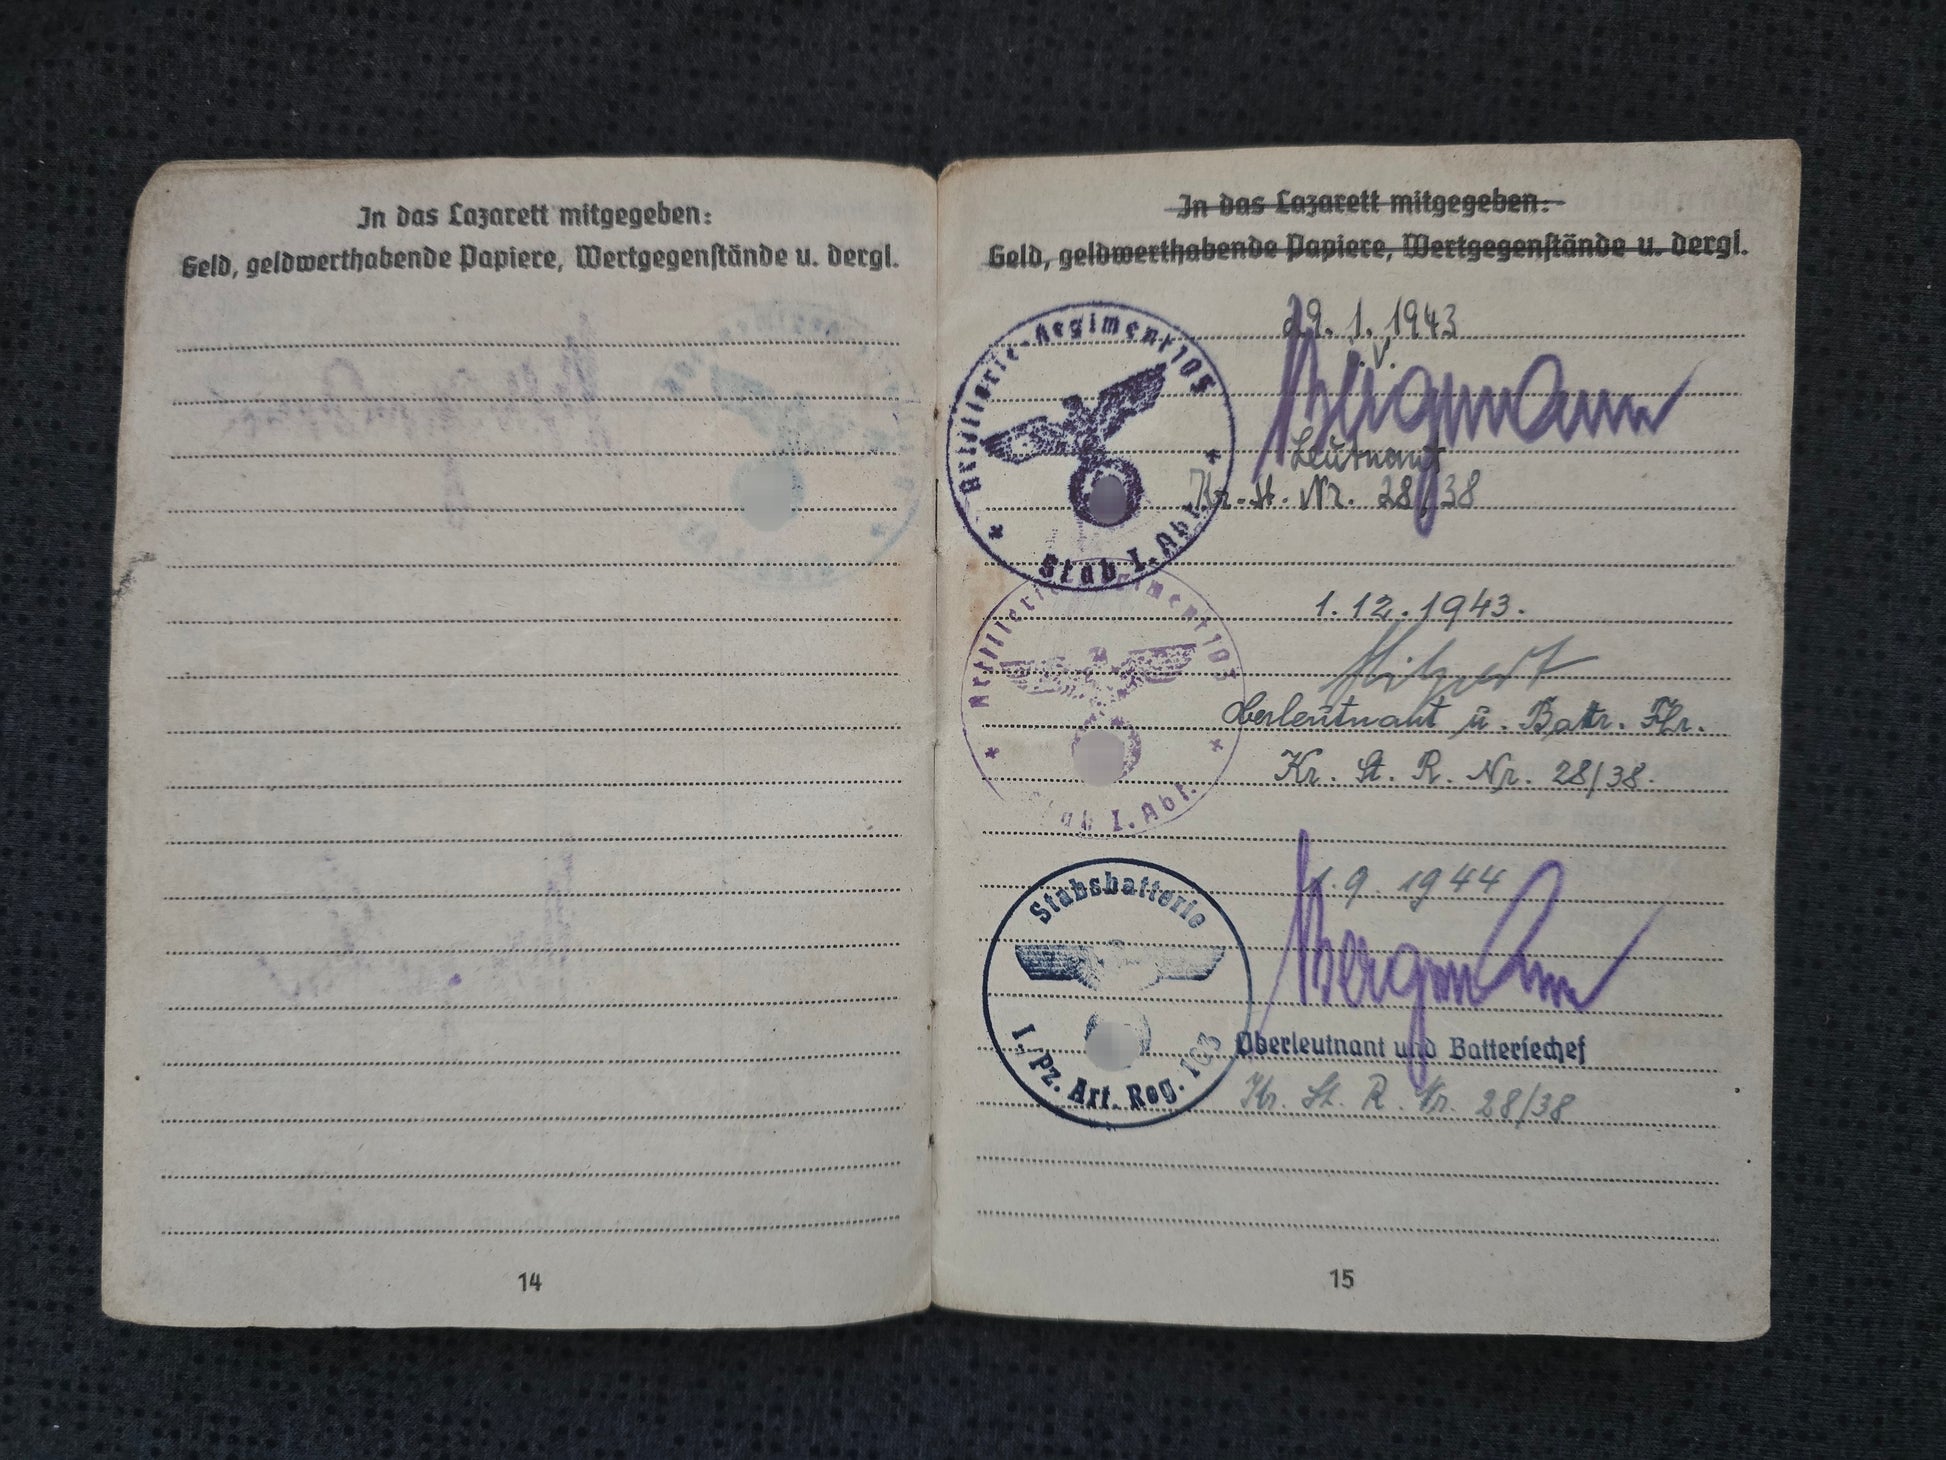 In das Lazarett mitgegeben:
Geld, geldwerthabende Papiere, Wertgegenstände u. dergl.
14
In das Lazarett mitgegeben:
Geld, geldwerthabende Papiere, Wertgegenstände u. dergl.
Artillerie-Regiment 103
Stab I. Abt.
29. 1. 1943
i. V.
Bergmann
Leutnant
Kr. St. Nr. 28/38
Artillerie-Regiment 103
Stab I. Abt.
1. 12. 1943.
Oberleutnant u. Battr. Fhr.
Kr. St. R. Nr. 28/38.
Stabsbatterie
I./Pz. Art. Reg. 103
1. 9. 1944
Bergmann
Oberleutnant und Batteriechef
Kr. St. R. Nr. 28/38
15